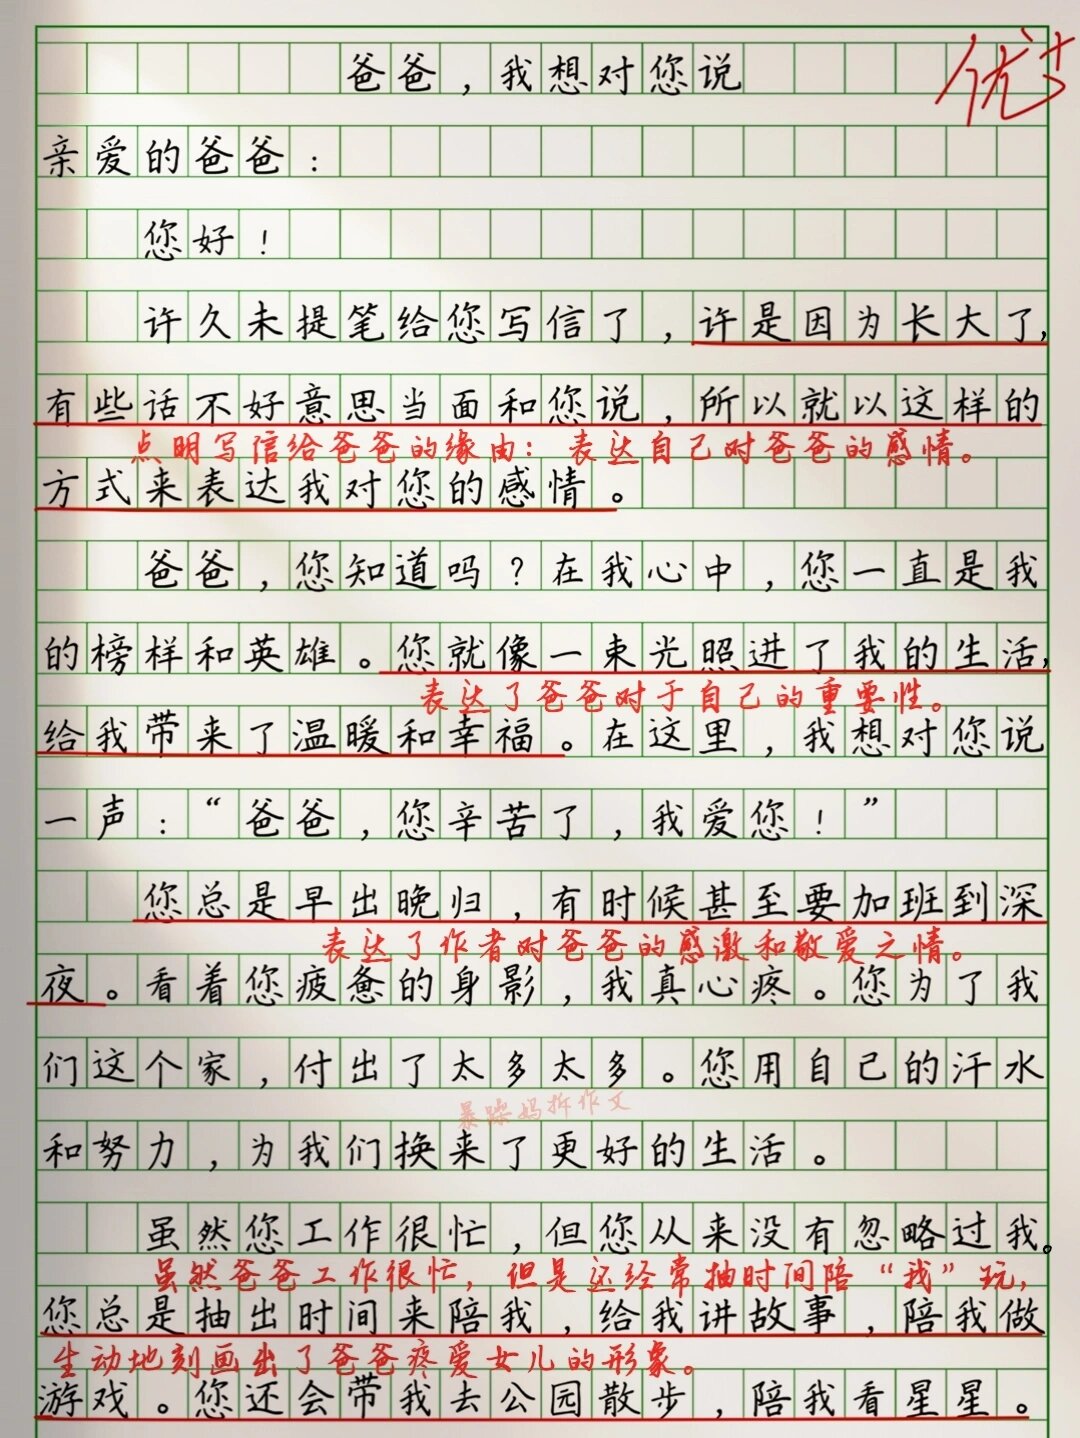 爸爸，我想对您说
优+
亲爱的爸爸：
您好！
许久未提笔给您写信了，许是因为长大了，
有些话不好意思当面和您说，所以就以这样的
点明写信给爸爸的缘由：表达自己对爸爸的感情。
方式来表达我对您的感情。
爸爸，您知道吗？在我心中，您一直是我
的榜样和英雄。您就像一束光照进了我的生活，
表达了爸爸对于自己的重要性。
给我带来了温暖和幸福。在这里，我想对您说
一声：“爸爸，您辛苦了，我爱您！”
您总是早出晚归，有时候甚至要加班到深
表达了作者对爸爸的感激和敬爱之情。
夜。看着您疲惫的身影，我真心疼。您为了我
们这个家，付出了太多太多。您用自己的汗水
暴躁妈拆作文
和努力，为我们换来了更好的生活。
虽然您工作很忙，但您从来没有忽略过我。
虽然爸爸工作很忙，但是还经常抽时间陪“我”玩，
您总是抽出时间来陪我，给我讲故事，陪我做
生动地刻画出了爸爸疼爱女儿的形象。
游戏。您还会带我去公园散步，陪我看星星。